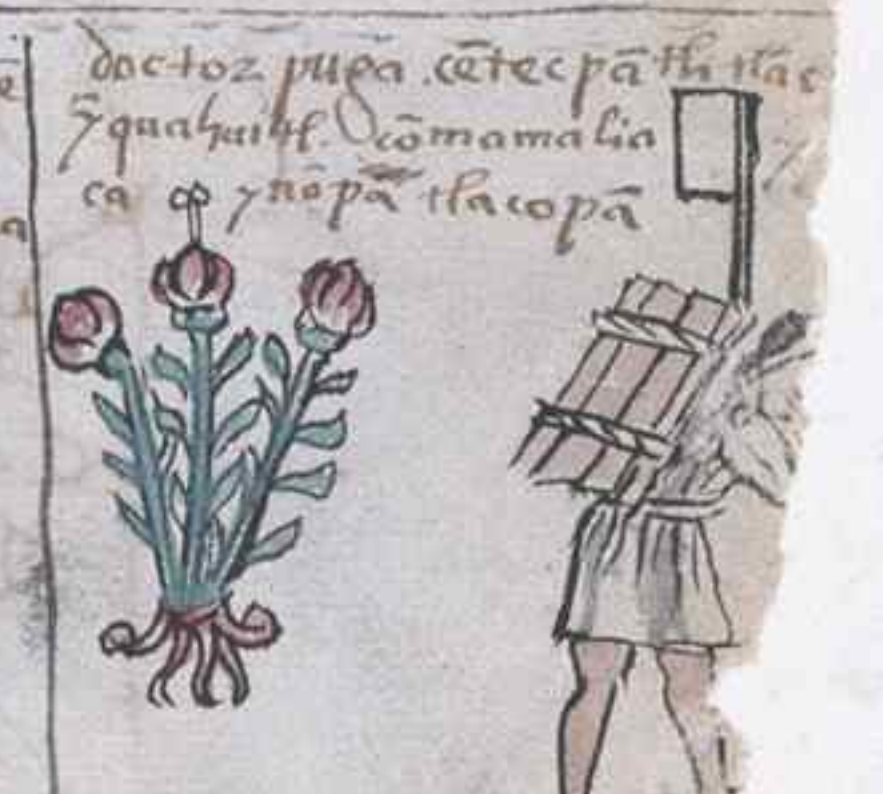 doctoz puga .cētecpātli tlac
ȳ quahuitl. cōmamalia
ca ynōpā tlacopā